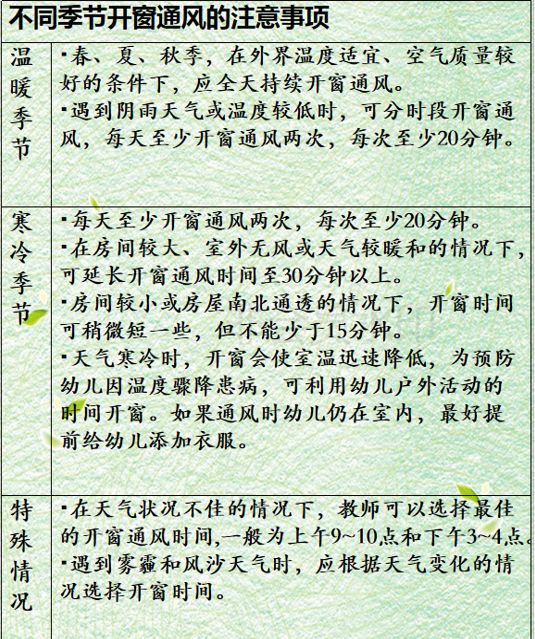 不同季节开窗通风的注意事项
温暖季节
▪春、夏、秋季，在外界温度适宜、空气质量较
好的条件下，应全天持续开窗通风。
▪遇到阴雨天气或温度较低时，可分时段开窗通
风，每天至少开窗通风两次，每次至少20分钟。
寒冷季节
▪每天至少开窗通风两次，每次至少20分钟。
▪在房间较大、室外无风或天气较暖和的情况下，
可延长开窗通风时间至30分钟以上。
▪房间较小或房屋南北通透的情况下，开窗时间
可稍微短一些，但不能少于15分钟。
▪天气寒冷时，开窗会使室温迅速降低，为预防
幼儿因温度骤降患病，可利用幼儿户外活动的
时间开窗。如果通风时幼儿仍在室内，最好提
前给幼儿添加衣服。
特殊情况
▪在天气状况不佳的情况下，教师可以选择最佳
的开窗通风时间,一般为上午9~10点和下午3~4点。
▪遇到雾霾和风沙天气时，应根据天气变化的情
况选择开窗时间。